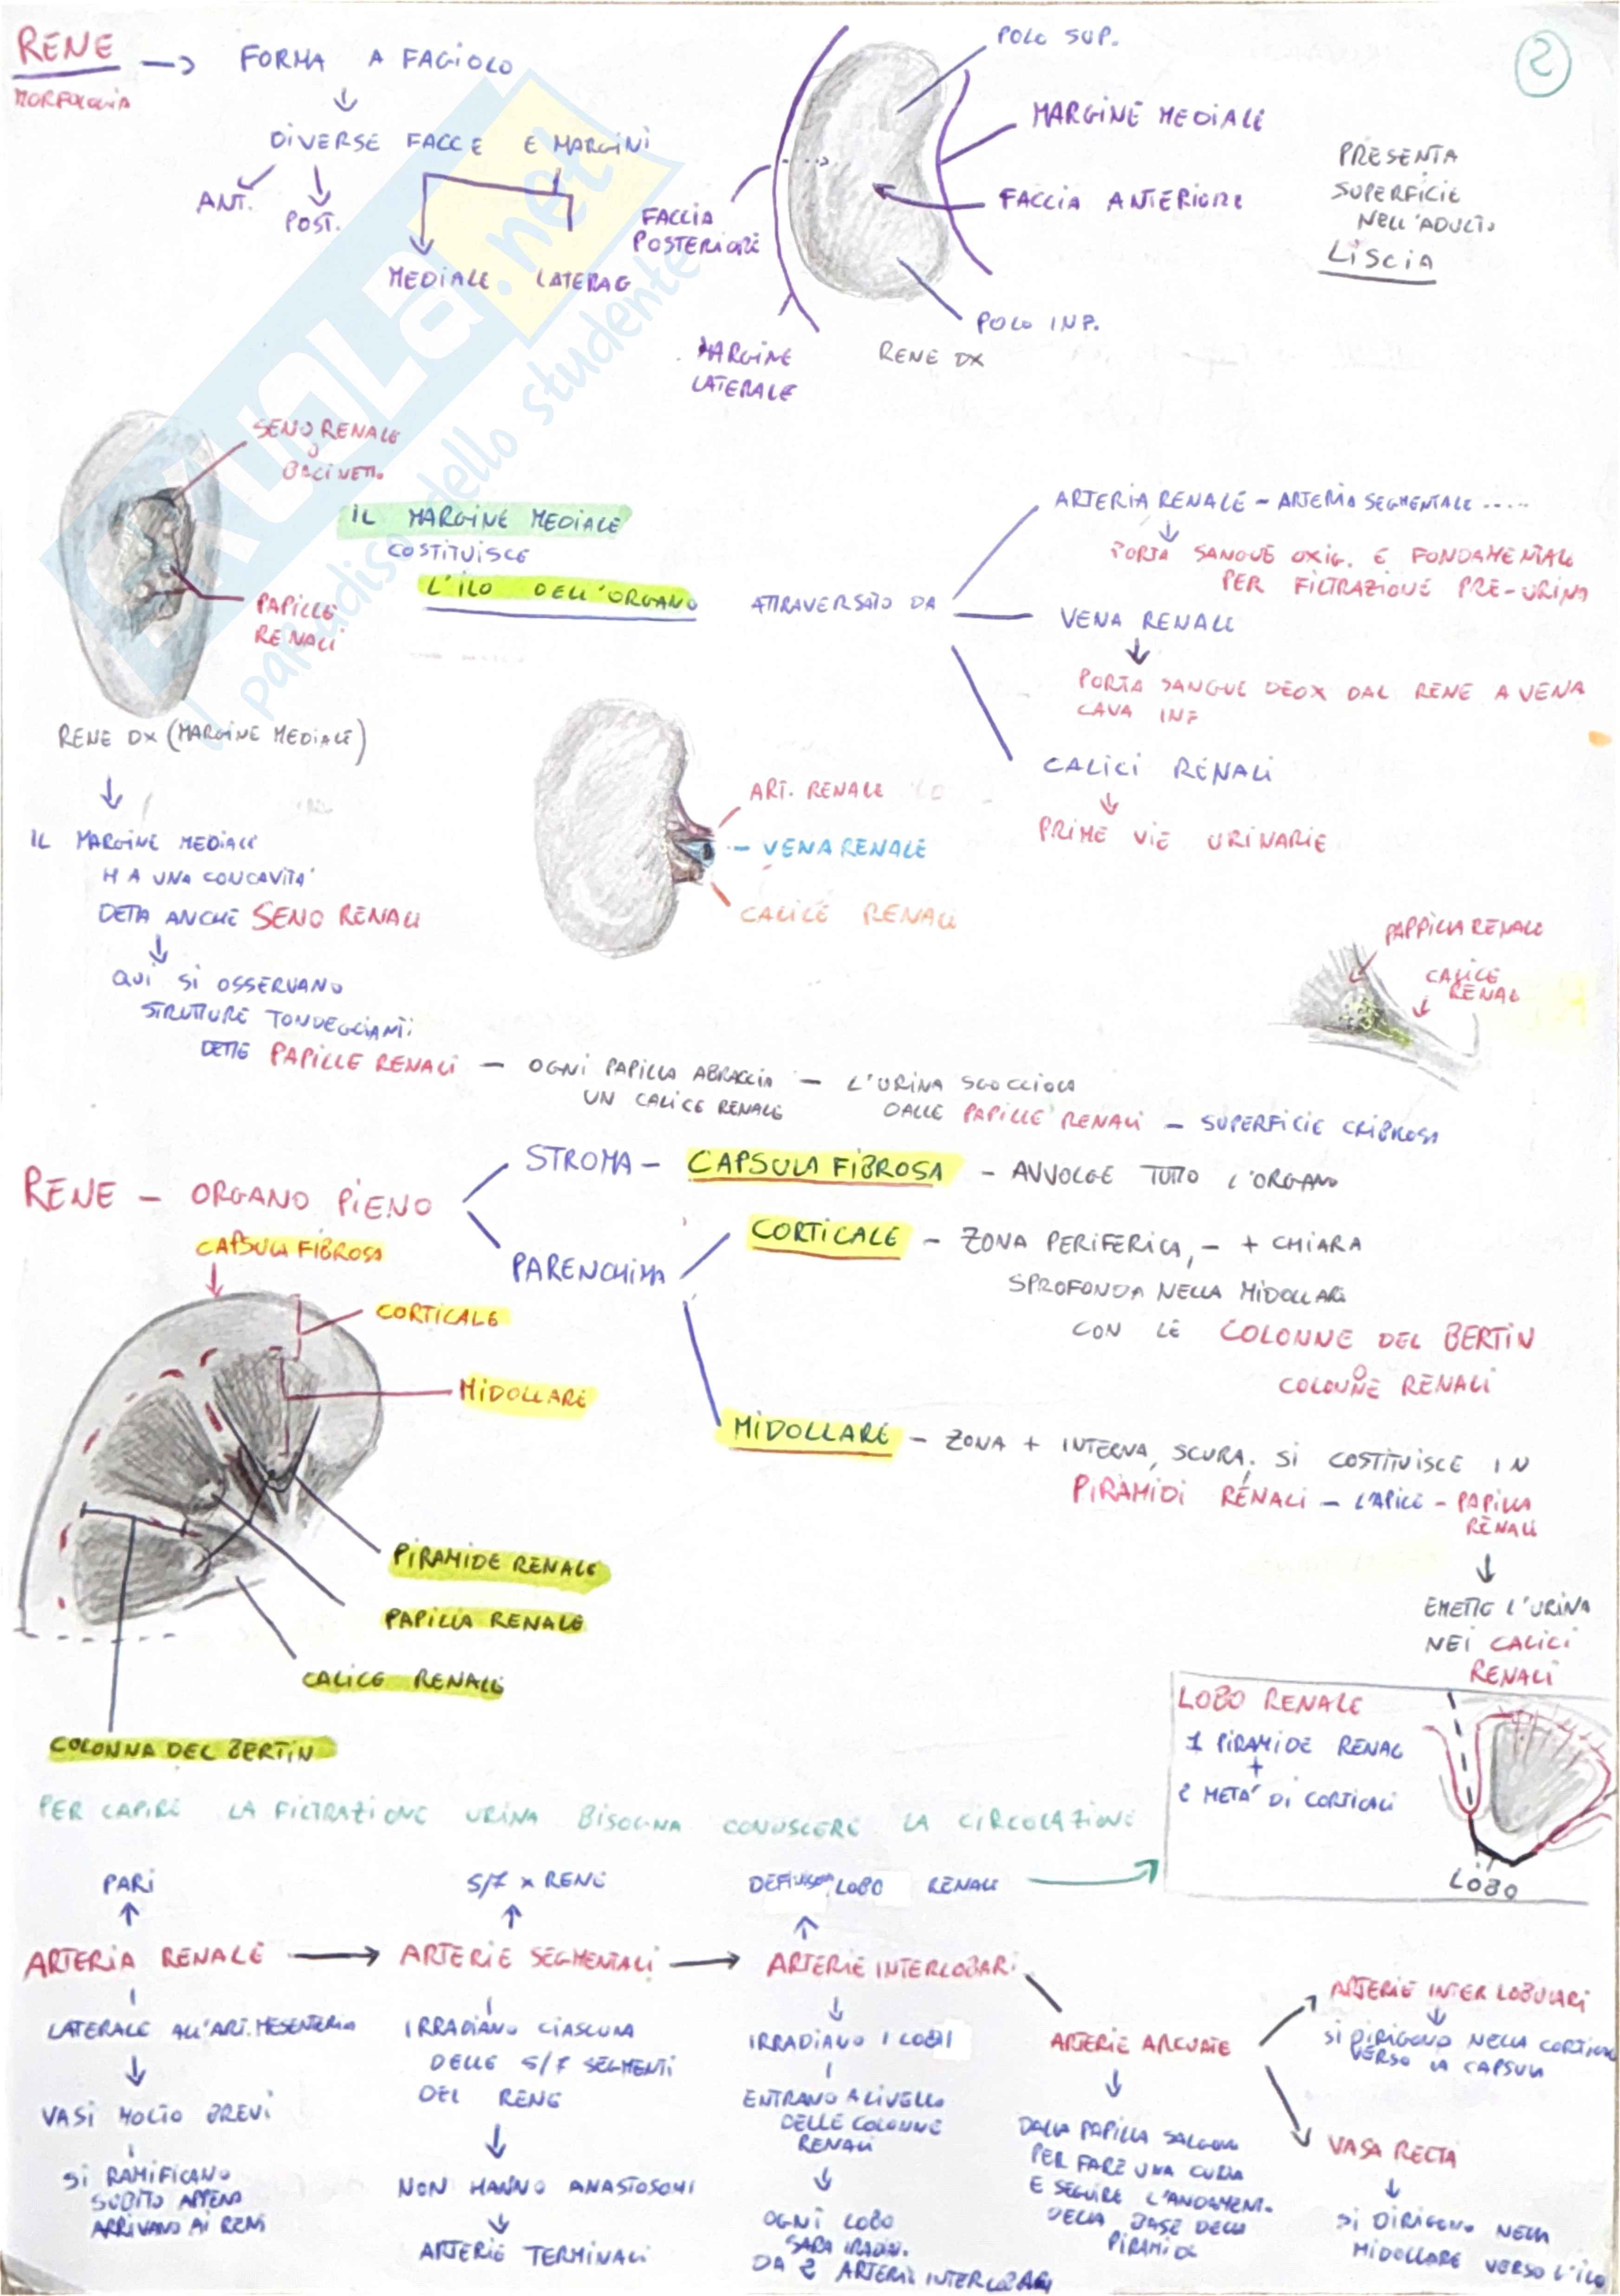 RENE → FORMA A FAGIOLO
MORFOLOGIA
2
DIVERSE FACCE E MARGINI
ANT.
POST.
MEDIALE LATERAL
POLO SUP.
MARGINE MEDIALE
FACCIA ANTERIORE
FACCIA
POSTERIORE
POLO INF.
MARGINE
LATERALE
RENE DX
PRESENTA
SUPERFICIE
NELL'ADULTO
LISCIA
SKUOLA.net
il paradiso dello studente
SENO RENALE
O
BACINETTO
PAPILLE
RENALI
RENE DX (MARGINE MEDIALE)
IL MARGINE MEDIALE
COSTITUISCE
L'ILO DELL'ORGANO
ATTRAVERSATO DA
ARTERIA RENALE - ARTERIA SEGMENTALE .....
PORTA SANGUE OXIG. E FONDAMENTALE
PER FILTRAZIONE PRE-URINA
VENA RENALE
PORTA SANGUE DEOX DAL RENE A VENA
CAVA INF
CALICI RENALI
PRIME VIE URINARIE
ART. RENALE
VENA RENALE
CALICE RENALE
IL MARGINE MEDIALE
HA UNA CONCAVITA'
DETTA ANCHE SENO RENALE
QUI SI OSSERVANO
STRUTTURE TONDEGGIANTI
DETTE PAPILLE RENALI - OGNI PAPILLA ABBRACCIA
UN CALICE RENALE
- L'URINA SGOCCIOLA
DALLE PAPILLE RENALI - SUPERFICIE CRIBROSA
PAPPILLA RENALE
CALICE
RENAL
RENE - ORGANO PIENO
STROMA - CAPSULA FIBROSA - AVVOLGE TUTTO L'ORGANO
PARENCHIMA
CORTICALE - ZONA PERIFERICA, - + CHIARA
SPROFONDA NELLA MIDOLLARE
CON LE COLONNE DEL BERTIN
O
COLONNE RENALI
MIDOLLARE - ZONA + INTERNA, SCURA, SI COSTITUISCE IN
PIRAMIDI RENALI - L'APICE - PAPILLA
RENALE
EMETTE L'URINA
NEI CALICI
RENALI
CAPSULA FIBROSA
CORTICALE
MIDOLLARE
PIRAMIDE RENALE
PAPILLA RENALE
CALICE RENALE
COLONNA DEL BERTIN
LOBO RENALE
1 PIRAMIDE RENAL
+
2 META' DI CORTICALI
LOBO
PER CAPIRE LA FILTRAZIONE URINA BISOGNA CONOSCERE LA CIRCOLAZIONE
PARI
5/7 x RENE
LOBO RENALE
ARTERIA RENALE → ARTERIE SEGMENTALI → ARTERIE INTERLOBARI
LATERALE ALL'ART. MESENTERIA
VASI MOLTO BREVI
SI RAMIFICANO
SUBITO APPENA
ARRIVANO AI RENI
IRRADIANO CIASCUNA
DELLE 5/7 SEGMENTI
DEL RENE
NON HANNO ANASTOSOMI
ARTERIE TERMINALI
IRRADIANO I LOBI
ENTRANO A LIVELLO
DELLE COLONNE
RENALI
OGNI LOBO
SARA IRRADI.
DA 2 ARTERIE INTERLOBARI
ARTERIE ARCUATE
DALLA PAPILLA SALGONO
PER FARE UNA CURVA
E SEGUIRE L'ANDAMENT.
DELLA BASE DELLA
PIRAMIDE
ARTERIE INTERLOBULARI
SI DIRIGONO NELLA CORTICALE
VERSO LA CAPSULA
VASA RECTA
SI DIRIGONO NELLA
MIDOLLARE VERSO L'ILO